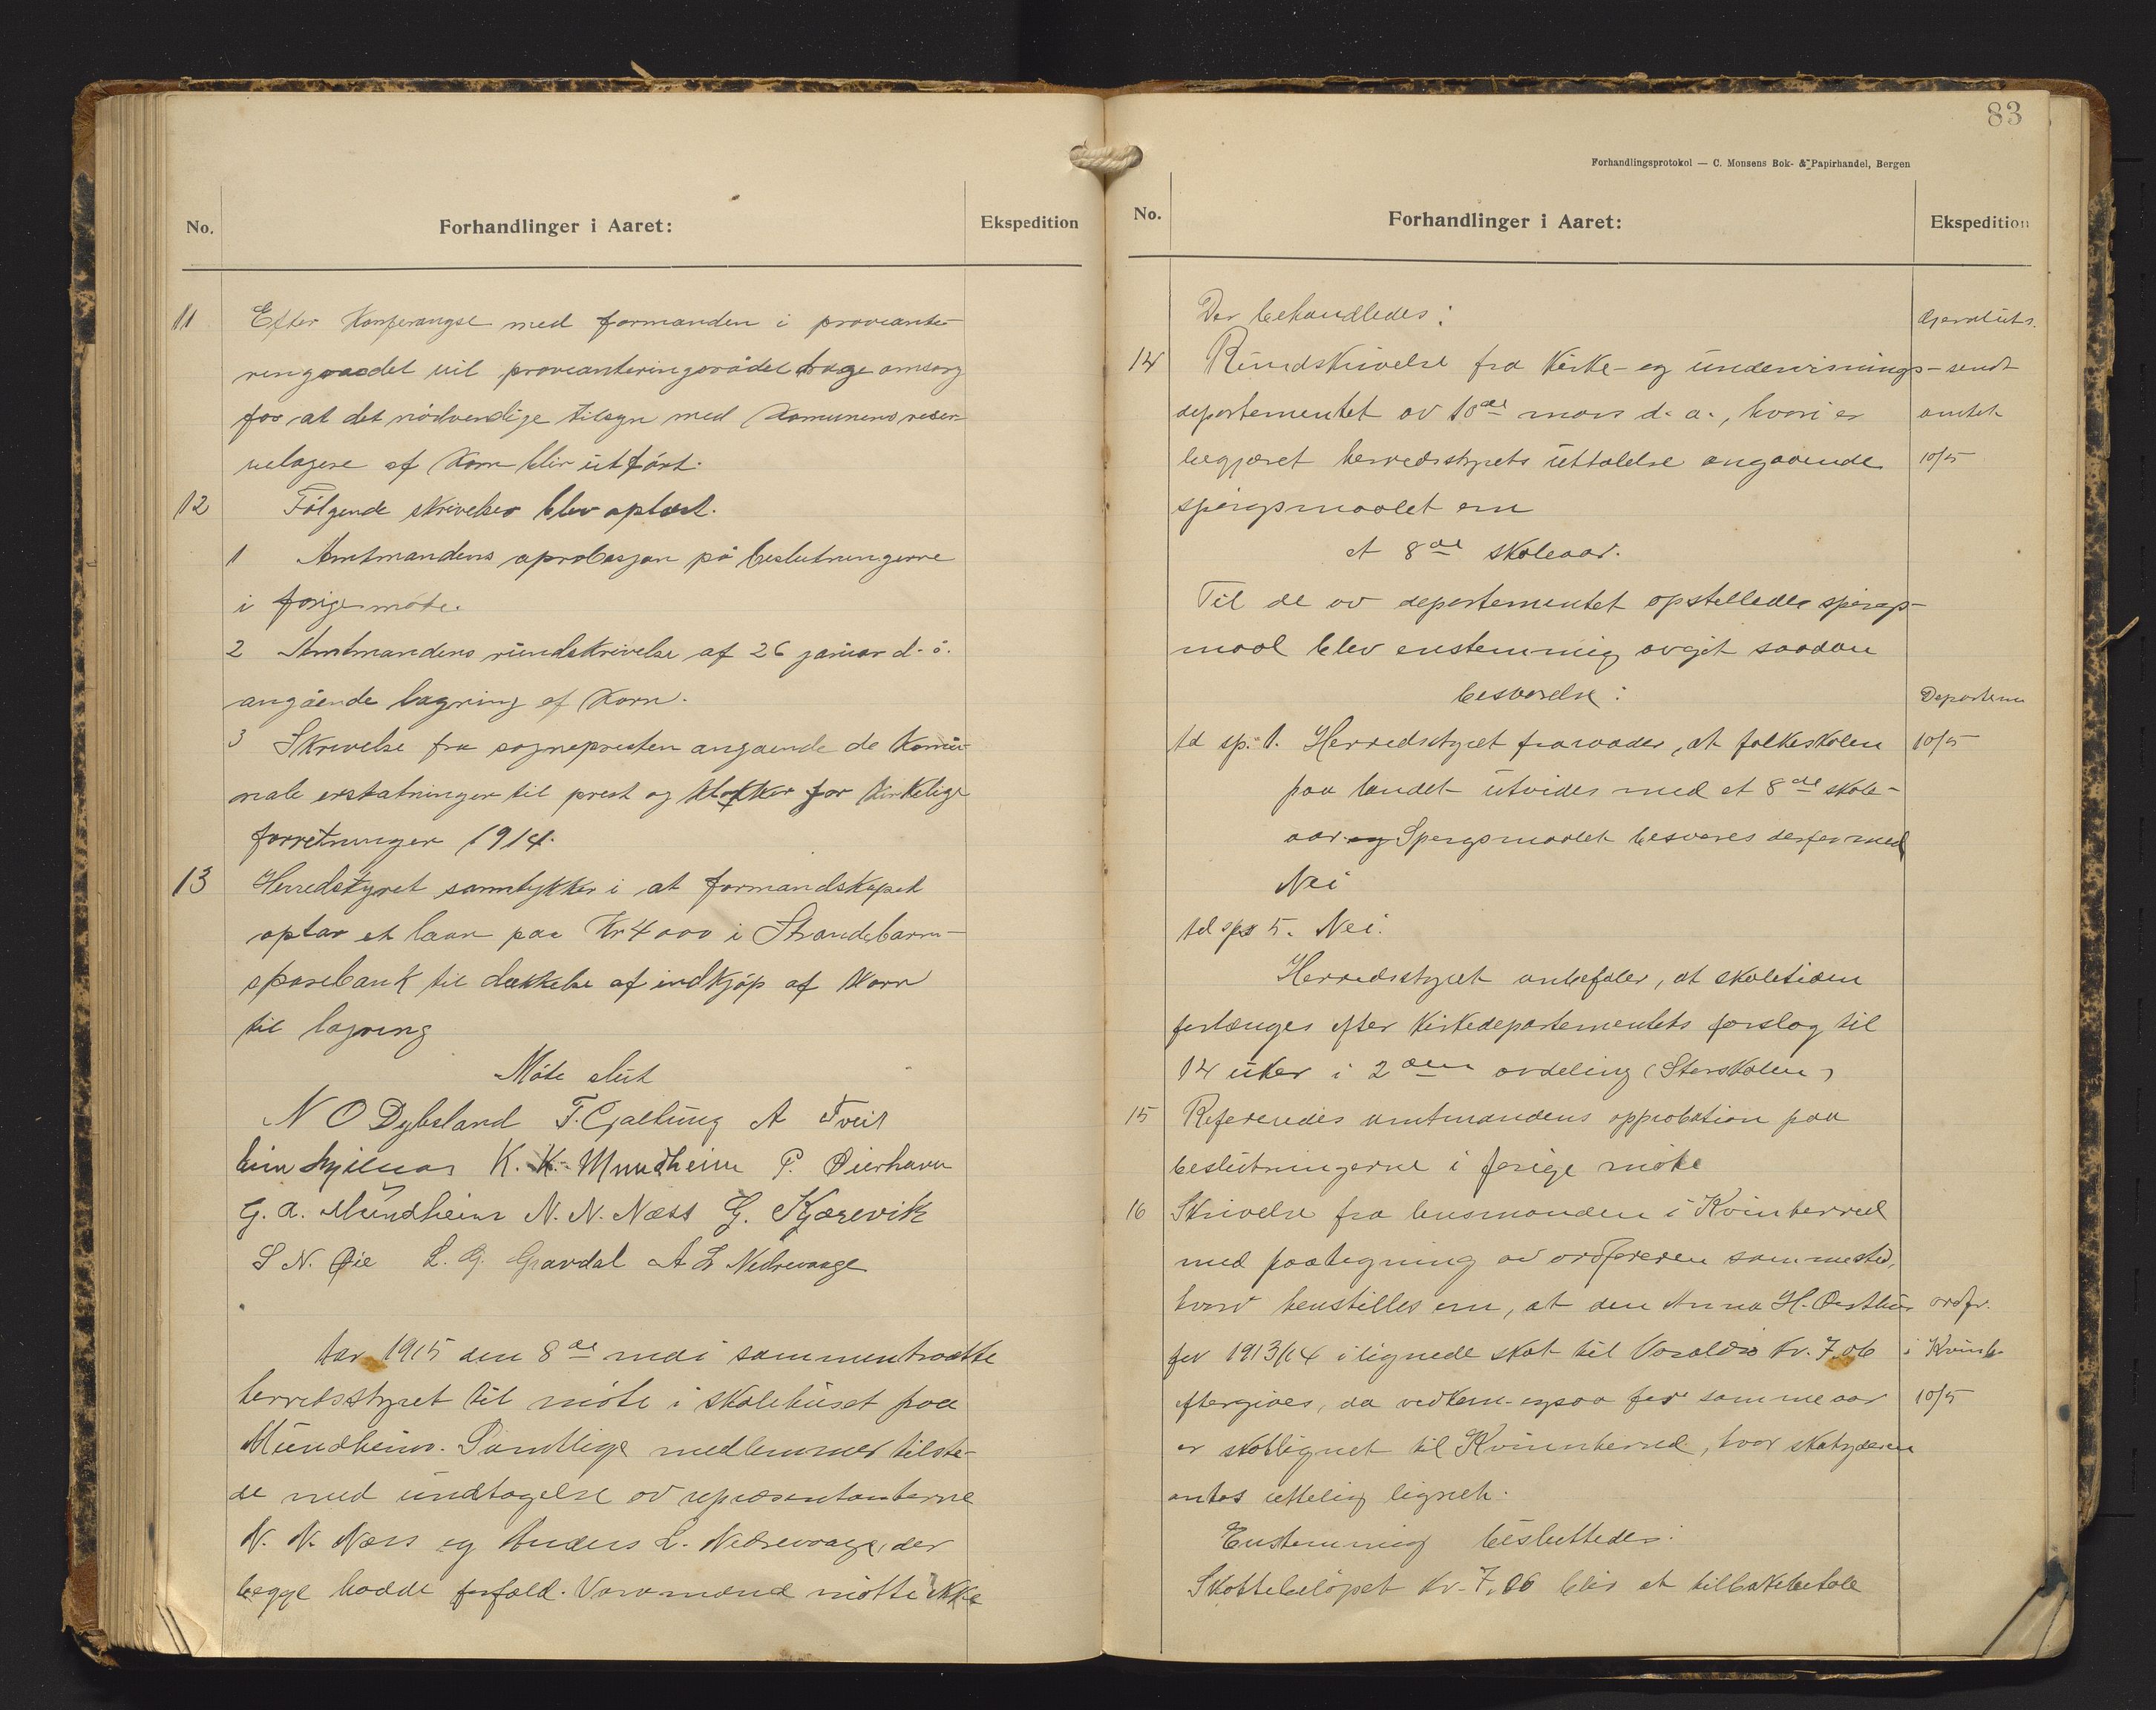 No.
Forhandlinger i Aaret:
Ekspedition
11 Efter Konferangse med formanden i provianter-
ringraadet vil provianteringsrådet drage omsorg
for at det nödvendige tilsyn med Komunens reser-
velagere af Korn blir utfört.
12 Fölgende skrivelser blev oplæst.
1 Amtmandens aprobasjon på beslutningerne
i forige möte.
2 Amtmandens rundskrivelse af 26 januar d. å.
angående lagring af Korn.
3 Skrivelse fra sognepresten angaende de Komu-
nale erstatninger til prest og klokker for kirkelige
forretninger 1914.
13 Herredstyret samtykker i at formandskapet
optar et laan paa Kr 4000 i Strandebarm-
sparebank til dækkelse af indkjöp af Korn
til lagring
Möte slut
N O Dybsland T. Gjaltung A Tveit
K. K. Mundheim P. Øierhavn
G. A. Mundheim N. N. Næss G. Kjærevik
S N. Øie L. G. Gravdal A L Nedrevaage
Aar 1915 den 8de mai sammentraatte
herredsstyret til möte i skolehuset paa
Mundheim. Samtlige medlemmer tilste-
de med undtagelse av repræsentanterne
N. N. Næss og Anders L. Nedrevaage, der
begge hadde forfald. Varamænd mötte ikke
83
Forhandlingsprotokol — C. Monsens Bok- & Papirhandel, Bergen
No.
Forhandlinger i Aaret:
Ekspedition
Der behandledes:
14 Rundskrivelse fra Kirke- og undervisnings- sendt
departementet av 10de mars d. a., hvori er amtet
begjæret herredsstyrets uttalelse angaaende 10/5
spörgsmaalet om
et 8de skoleaar.
Til de av departementet opstillede spörgs-
maal blev enstemmig avgit saadan
besvarelse: Departem
til sp. 1. Herredsstyret fraraader, at folkeskolen 10/5
paa landet utvides med et 8de skole-
aar. og Spörgsmaalet besvares derfor med
Nei
til sps 5. Nei.
Herredsstyret anbefaler, at skoletiden
forlænges efter Kirkedepartementets forslag til
14 uker i 2den avdeling (Storskolen)
15 Refereredes amtmandens approbation paa
beslutningerne i forige möte
16 Skrivelse fra lensmanden i Kvinherred
med paategning av ordföreren sammested,
hvori henstilles om, at den Anna H. ordfr.
for 1913/14 ilignede skat til Varaldsö Kr. 7.06 i Kvinh.
eftergives, da vedkom. ogsaa for samme aar 10/5
er skatlignet til Kvinnherred, hvor skatyderen
antas rettelig lignet.
Enstemmig besluttedes:
Skattebelöpet Kr. 7.06 blir at tilbakebetale